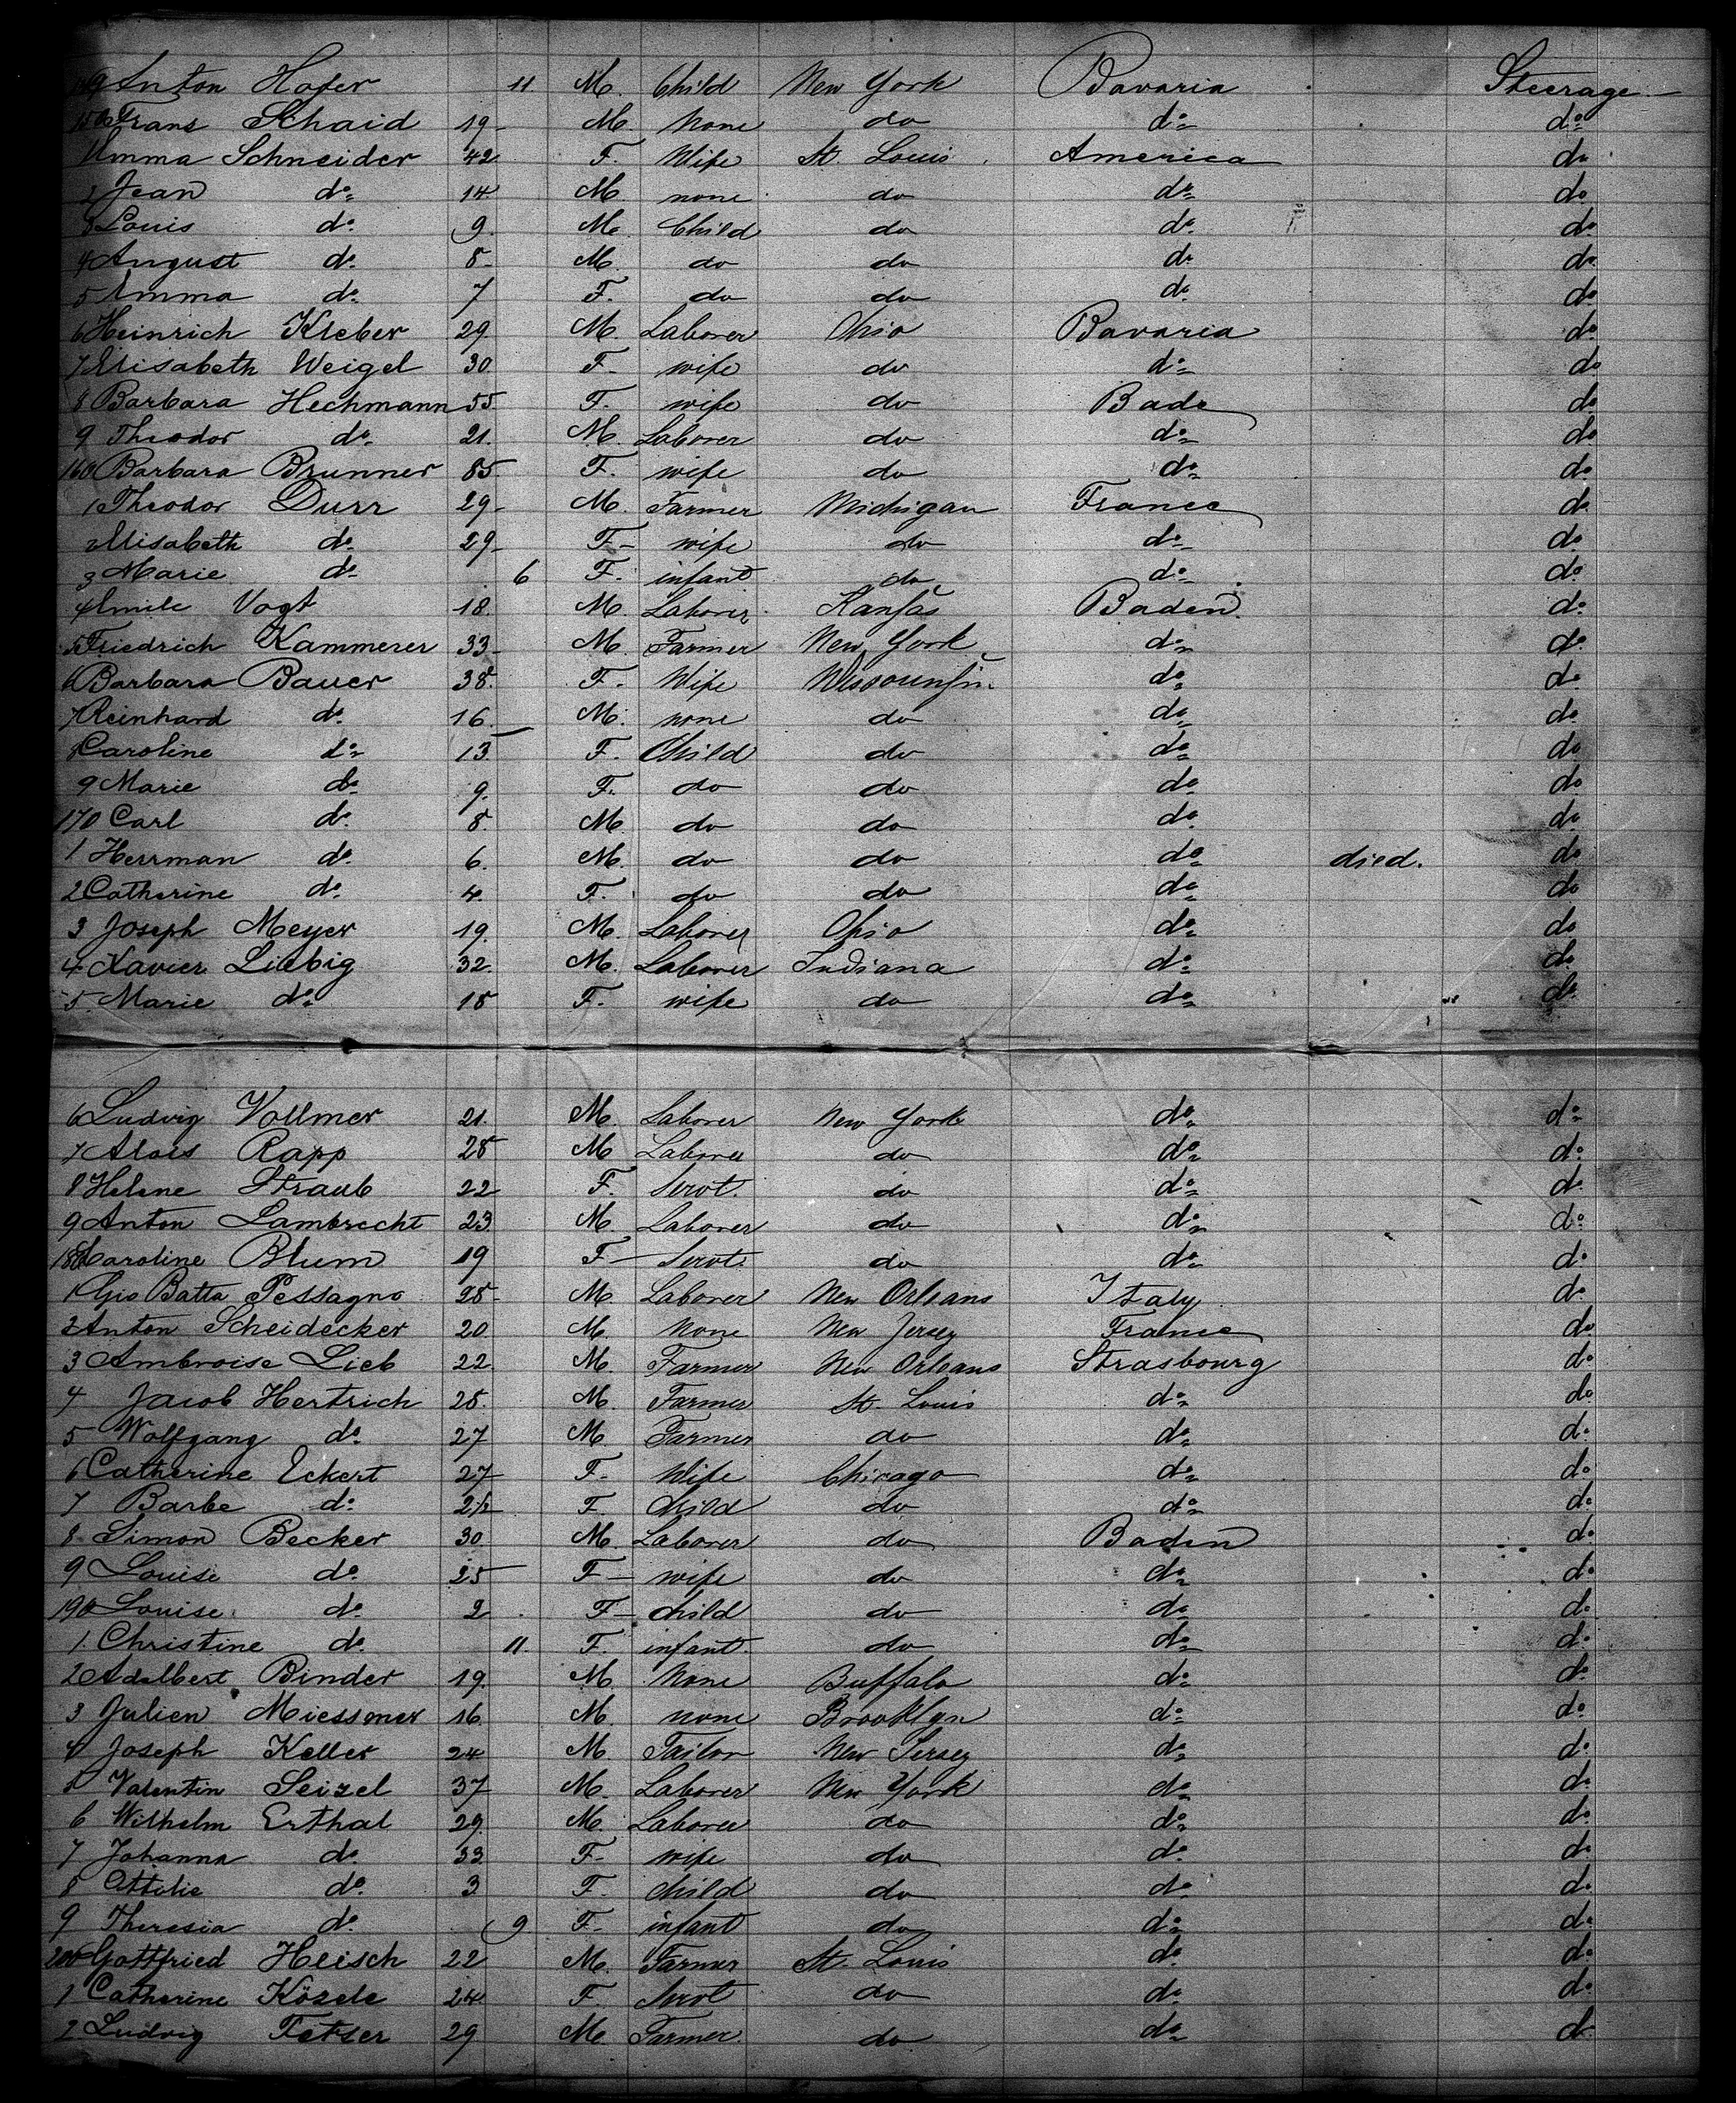 149 Anton Hofer 11. M. Child New York Bavaria Steerage
150 Frans Schaid 19 M. None do do do
1 Emma Schneider 42 F. Wife St. Louis America do
2 Jean do 14 M. none do do do
3 Louis do 9. M. Child do do do
4 August do 8 M. do do do do
5 Emma do 7 F. do do do do
6 Heinrich Kleber 29. M. Laborer Ohio Bavaria do
7 Elisabeth Weigel 30. F. wife do do do
8 Barbara Hechmann 55 F. wife do Bade do
9 Theodor do 21. M. Laborer do do do
160 Barbara Brunner 85 F. wife do do do
1 Theodor Durr 29 M. Farmer Michigan France do
2 Elisabeth do 29 F. wife do do do
3 Marie do 6 F. infant do do do
4 Emile Vogt 18. M. Laborer Kansas Baden. do
5 Friedrich Kammerer 33 M. Farmer New York do do
6 Barbara Bauer 38. F. Wife do do
7 Reinhard do 16. M. none do do do
8 Caroline do 13. F. Child do do do
9 Marie do 9. F. do do do do
170 Carl do 8. M. do do do do
1 Herrman do 6. M. do do do died. do
2 Catherine do 4. F. do do do do
3 Joseph Meyer 19. M. Laborer Ohio do do
4 Xavier Liebig 32. M. Laborer Indiana do do
5 Marie do 18 F. wife do do do
6 Ludvig Vollmer 21. M. Laborer New York do do
7 Alois Rapp 28 M Laborer do do do
8 Helene Straub 22 F. Servt. do do do
9 Anton Lambrecht 23 M. Laborer do do do
180 Caroline Blum 19 F Servt. do do do
1 Gio Batta Pessagno 28 M. Laborer New Orleans Italy do
2 Anton Scheidecker 20 M. None New Jersey France do
3 Ambroise Lieb 22. M. Farmer New Orleans Strasbourg do
4 Jacob Hertrich 28. M. Farmer St. Louis do do
5 Wolfgang do 27 M. Farmer do do do
6 Catherine Eckert 27 F. Wife Chicago do do
7 Barbe do F child do do do
8 Simon Becker 30. M. Laborer do Baden do
9 Louise do 25 F wife do do do
190 Louise do 2 F child do do do
1. Christine do 11. F. infant do do do
2 Adalbert Binder 19. M. None Buffalo do do
3 Julien Miessmer 16 M. none Brooklyn do do
4 Joseph Keller 24 M Tailor New Jersey do do
5 Valentin Seizel 37 M. Laborer New York do do
6 Wilhelm Erthal 29. M. Laborer do do do
7 Johanna do 33 F. wife do do do
8 Ottolie do 3 F. child do do do
9 Theresia do 9 F. infant do do do
200 Gottfried Heisch 22 M. Farmer St. Louis do do
1 Catherine Közele 24. F. Servt do do do
2 Ludvig Fetser 29 M. Farmer do do do